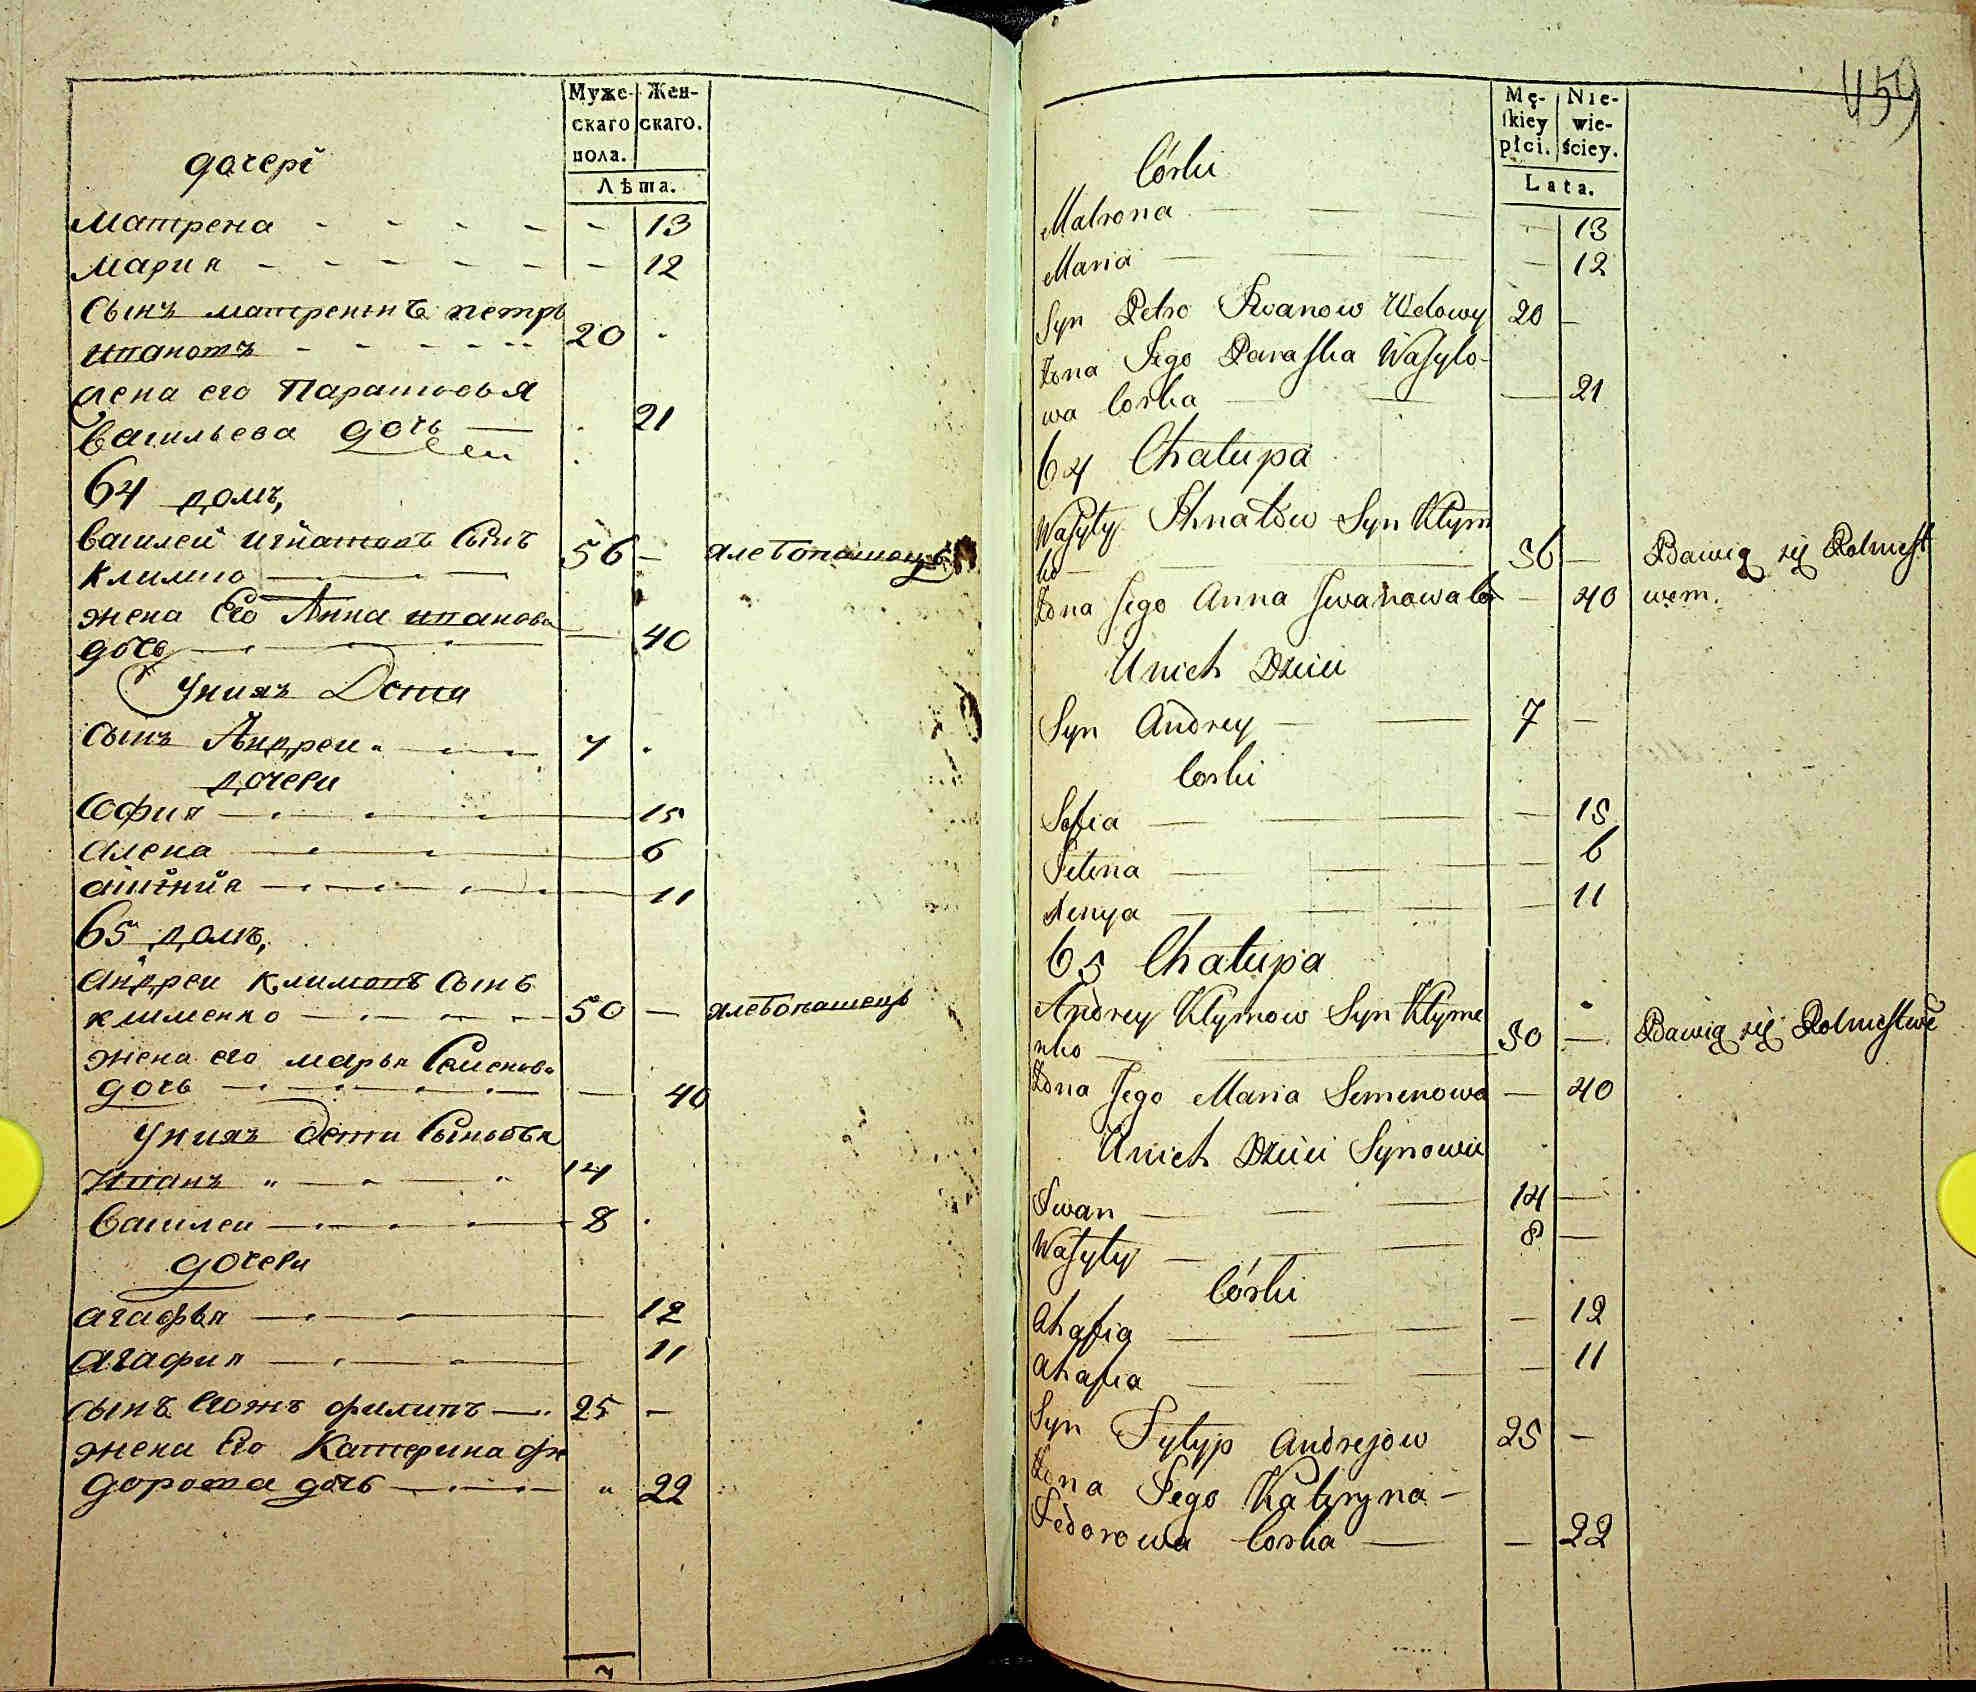 Муже- Жен-
скаго скаго.
пола.
Лѣта.
дочері
Матрена - - - - - - 13
Мария - - - - - - - 12
Сынъ матренинъ петръ
ивановъ - - - - - 20 -
жена его Парасковья
васильева дочь — 21
64 домъ,
василей игнатовъ Сынъ 56 — хлебопашецъ
климко
жена Его Анна иванова
дочь — 40
унихъ Дети
Сынъ Андреи 7
дочери
София — 15
алена — 6
65 домъ,
андреи климовъ Сынъ
клименко — 50 — хлебопашецъ
жена его марья Семенова
дочь — 40
унихъ дети Сыновья
Иванъ — 14
Василеи — 8
дочери
агафья — 12
агафия — 11
сынъ Егожъ филипъ — 25 —
жена Его Катерина фе
дорова дочь — 22
459
Mę- Nie-
ſkiey wie-
płci. ściey.
Lata.
Córki
Matrona — — — 13
Maria — — — 12
Syn Petro Iwanow Wdowy 20 —
Żona Jego Paraſka Waſylo-
wa Corka — — — 21
64 Chałupa
Waſyly Ihnatow Syn Klym
ko — 56 — Bawią się Rolnicſt
Żona Jego Anna Jwanowa Co — 40 wem.
Unich Dzieci
Syn Andrey — — 7 —
Corki
Sofia — — — 15
Jelena — — — 6
Xenya — — — 11
65 Chałupa
Andrey Klymow Syn Klyme
nko — 50 — Bawią się Rolnicſtwē
Żona Jego Maria Semenowa — 40
Unich Dzieci Synowie
Iwan — — — 14 —
Waſyly — — — 8 —
Córki
Ahafia — — — 12
Ahafia — — — 11
Syn Fylyp Andrejow 25 —
Żona Jego Kateryna —
Fedorowa Corka — — 22